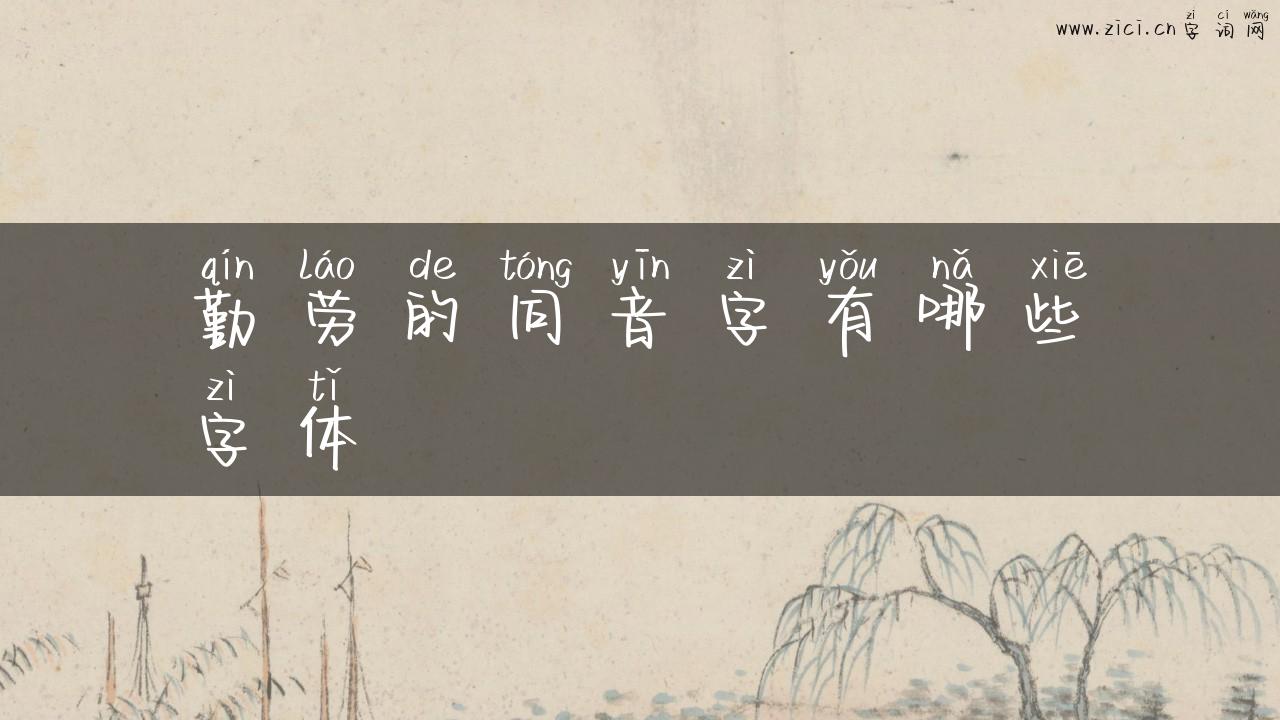 zì cí wǎng
www.zici.cn 字词网
qín láo de tóng yīn zì yǒu nǎ xiē
勤劳的同音字有哪些
zì tǐ
字体